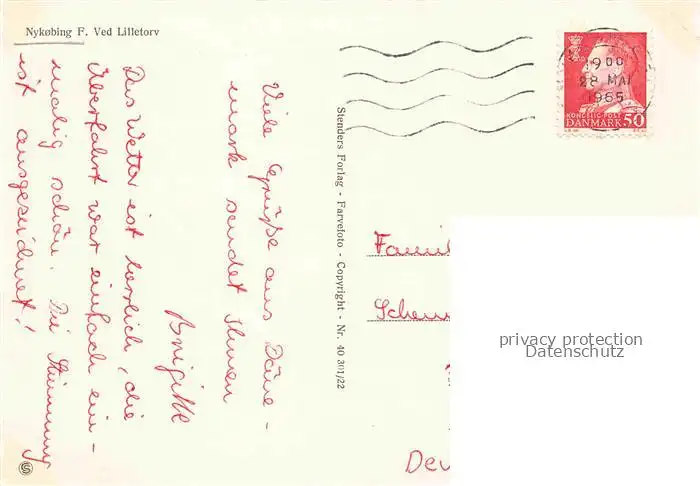 Nykøbing F. Ved Lilletorv
Viele Grüße aus Däne-
mark sendet Ihnen
Brigitte
Das Wetter ist herrlich, die
Überfahrt war einfach ein-
malig schön. Die Stimmung
ist ausgezeichnet!
Stenders Forlag - Farvefoto - Copyright - Nr. 40 301/22
19 00
28 MAI
1965
KONGELIG POST
DANMARK 50
Famil
Scheu
Deu
privacy protection
Datenschutz